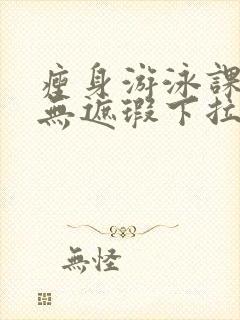 瘦身游泳課
無遮瑕下拉
無怪